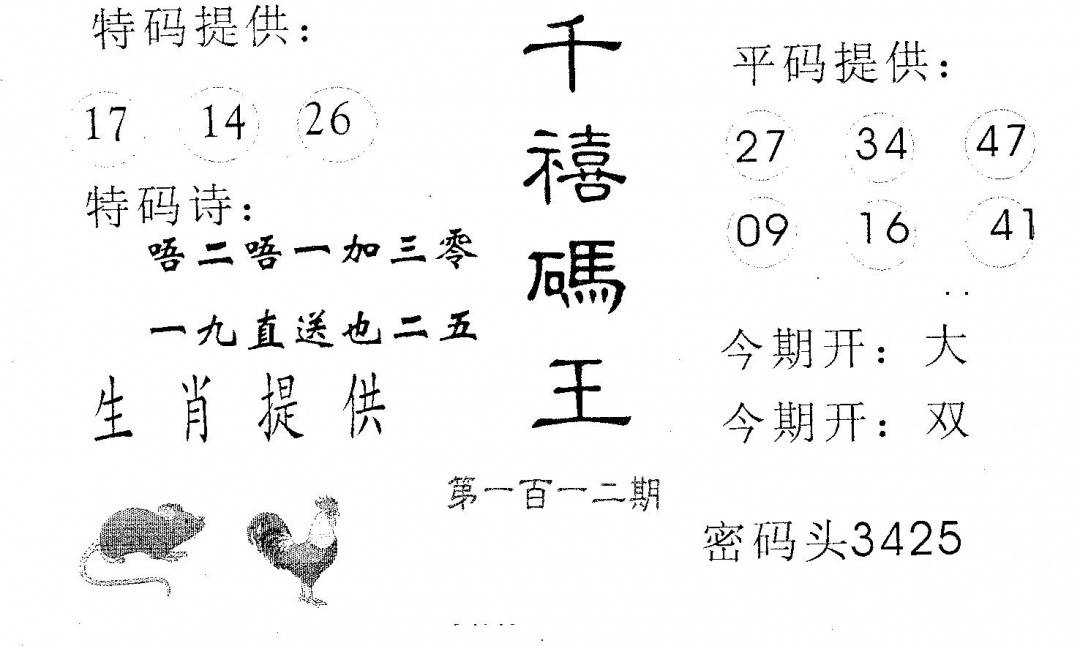 特码提供:
17 14 26
特码诗:
唔二唔一加三零
一九直送也二五
生肖提供
千禧碼王
第一百一二期
平码提供:
27 34 47
09 16 41
今期开: 大
今期开: 双
密码头3425